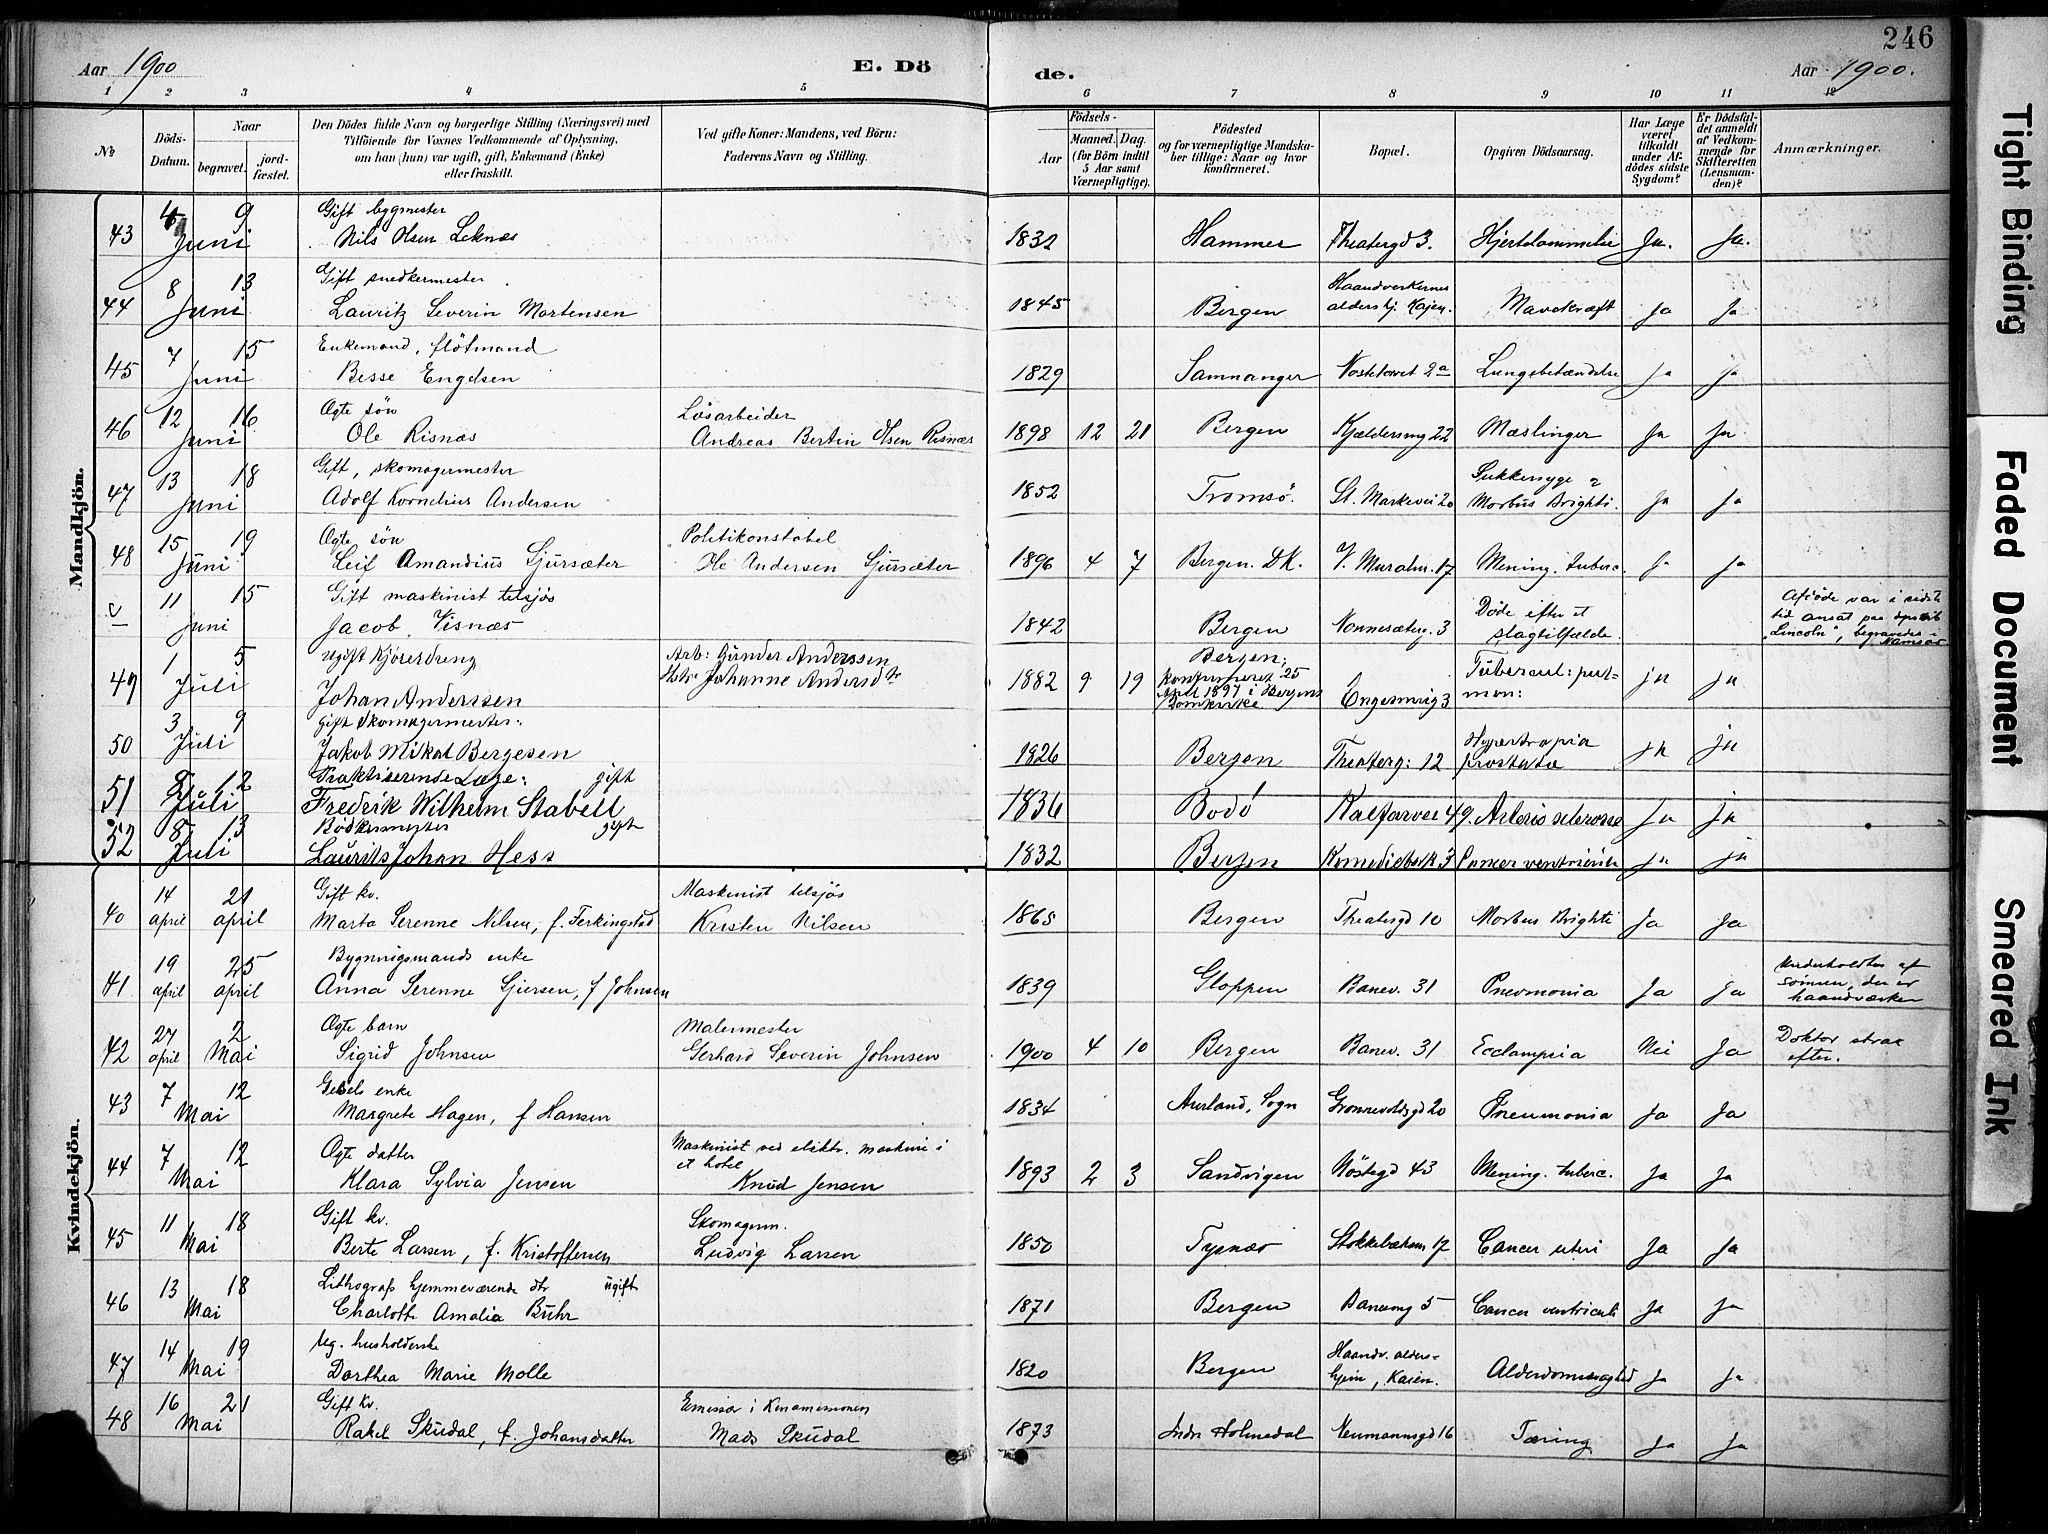 246
Aar 1900
E. Dö
de.
Aar 1900.
1 2 3 4 5 6 7 8 9 10 11 12
№
Döds-Datum.
Naar
begravet.
jord-fæstet.
Den Dödes fulde Navn og borgerlige Stilling (Næringsvei) med
Tilföiende for Voxnes Vedkommende af Oplysning,
om han (hun) var ugift, gift, Enkemand (Enke)
eller fraskilt.
Ved gifte Koner: Mandens, ved Börn:
Faderens Navn og Stilling.
Födsels-
Aar
Maaned. Dag.
(for Börn indtil
5 Aar samt
Værnepligtige).
Födested
og for værnepligtige Mandska-
ber tillige: Naar og hvor
konfirmeret.
Bopæl.
Opgiven Dödsaarsag.
Har Læge
været
tilkaldt
under Af-
dödes sidste
Sygdom?
Er Dödsfal-
det anmeldt
af Vedkom-
mende for
Skifteretten
(Lensman-
den)?
Anmærkninger.
Mandkjön.
43 4 9 Juni Gift bygmester
Nils Olsen Leknæs 1832 Hammer Theatergd 3. Hjertelammelse Ja. Ja.
44 8 13 Juni Gift snedkermester
Lauritz Severin Mortensen 1845 Bergen Haandverkernes aldershj. Kajen. Mavekræft Ja Ja
45 7 15 Juni Enkemand, flötmand
Besse Engelsen 1829 Samnanger Nostetorvet 2a Lungebetændelse Ja Ja
46 12 16 Juni Ægte sön Lösarbeider
Ole Risnæs Andreas Bertin Olsen Risnæs 1898 12 21 Bergen Kjeldersmg 22 Mæslinger Ja Ja
47 13 18 Juni Gift, skomagermester
Adolf Kornelius Andersen 1852 Tromsö. St. Markevei 20 Sukkersyge & Morbus Brighti. Ja Ja
48 15 19 Juni Ægte sön Politikonstabel
Leif Amandius Gjursæter Ole Andersen Gjursæter 1896 4 7 Bergen. DK. V. Muralm. 17 Mening. tuberc. Ja Ja
11 15 Juni Gift maskinist tilsjös
Jacob Visnæs 1842 Bergen Nonnesæterg. 3 Döde efter et slagtilfælde. Afdöde var i sidste
tid ansat paa dpsk
"Lincoln", begravedes i
Namsos
49 1 5 Juli Ugift Kjöredreng Arb: Gunder Anderssen
Johan Anderssen Hstr Johanne Andersdtr 1882 9 19 Bergen; konfirmeret 25 April 1897 i Bergens Domkirke. Engesmug 3 Tubercul: pulmon: ja ja
50 3 9 Juli gift Skomagermester:
Jakob Mikal Bergesen 1826 Bergen Theaterg: 12 Hypertropia prostata ja ja
51 5 12 Juli Praktiserende Læge: gift
Fredrik Wilhelm Stabell 1836 Bodö Kalfarvei 49. Arterio sclerose Ja ja
52 8 13 Juli Bödkermester gift
Laurits Johan Hess 1832 Bergen Komediebak 3 Cancer ventriculi ja ja
Kvindekjön.
40 14 april 21 april Gift kv. Maskinist tilsjös
Marta Serenne Nilsen, f. Ferkingstad Kristen Nilsen 1865 Bergen Theatergd 10 Morbus Brighti Ja Ja
41 19 april 25 april Bygningsmands enke
Anna Serenne Gjersen, f Johnsen 1839 Gloppen Banev. 31 Pnevmonia Ja Ja Underholdtes af
sönnen, der er
haandværker
42 27 april 2 Mai Ægte barn Malermester
Sigrid Johnsen Gerhard Severin Johnsen 1900 4 10 Bergen Banev. 31 Ecclampsia Nei Ja Doktor strax
efter.
43 7 12 Mai Gesels enke
Margrete Hagen, f Hansen 1834 Aurland, Sogn Grönnevoldsgd 20 Pneumonia Ja Ja
44 7 12 Mai Ægte datter Maskinist ved elektr. maskine i
et hotel
Klara Sylvia Jensen Knud Jensen 1893 2 3 Sandvigen Nöstegd 43 Mening. tuberc. Ja Ja
45 11 18 Mai Gift kv. Skomagerm.
Berte Larsen, f. Kristoffersen Ludvig Larsen 1850 Tysnæs 17 Cancer uteri Ja Ja
46 13 18 Mai Lithograf hjemmeværende dtr ugift
Charlotte Amalia Buhr 1871 Bergen Banesmg 5 Cancer ventriculi Ja Ja
47 14 19 Mai Ug. husholderske
Dorthea Marie Molle 1820 Bergen Haandv. alders-hjem, Kaien. Alderdomssvaghed Ja Ja
48 16 21 Mai Gift kv. Emissær i Kinamissionen
Rakel Skudal, f. Johansdatter Mads Skudal 1873 Indre Holmedal Neumannsgd 16 Tæring Ja Ja
Tight Binding
Faded Document
Smeared Ink